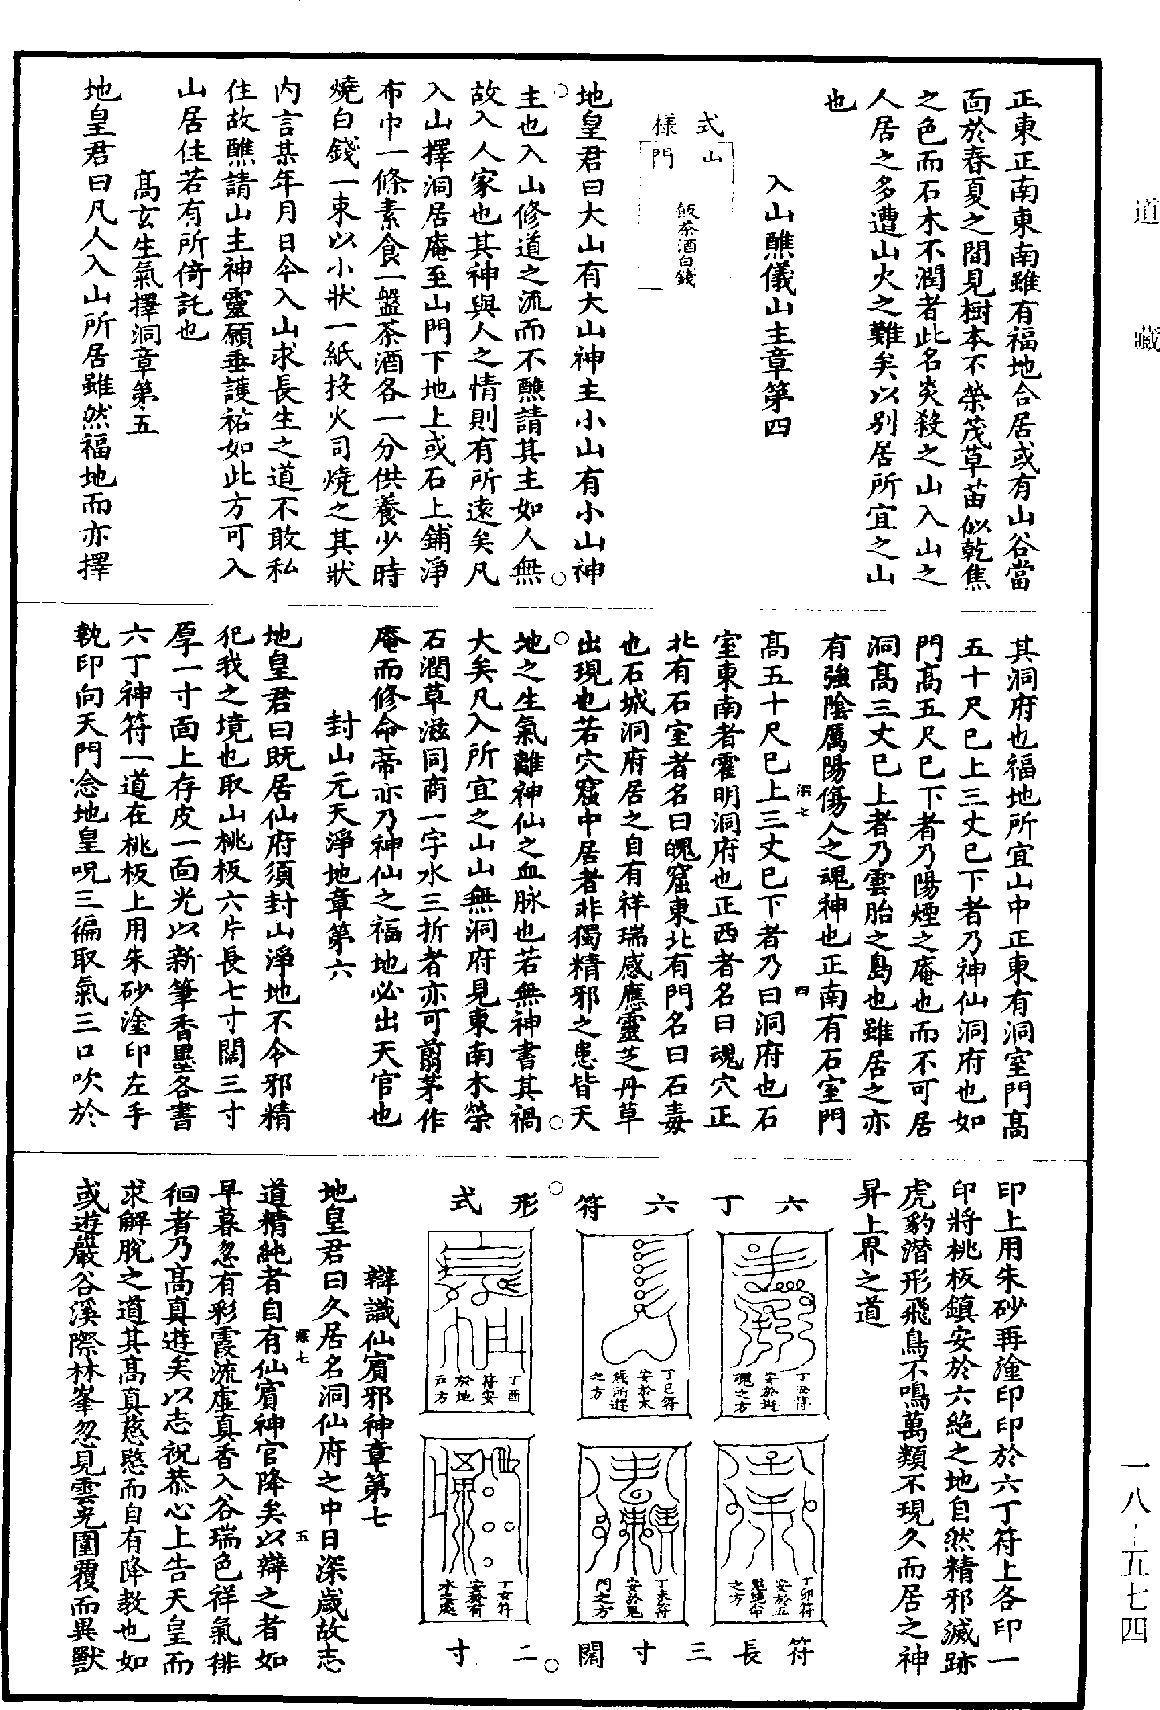 道藏
正東正南東南雖有福地合居或有山谷當
面於春夏之間見樹本不榮茂草苗似乾焦
之色而石木不潤者此名炎殺之山入山之
人居之多遭山火之難矣以別居所宜之山
也
入山醮儀山主章第四
式樣
山門
飯茶酒白錢
地皇君曰大山有大山神主小山有小山神
主也入山修道之流而不醮請其主如人無
故入人家也其神與人之情則有所遠矣凡
入山擇洞居庵至山門下地上或石上鋪淨
布巾一條素食一盤茶酒各一分供養少時
燒白錢一束以小狀一紙投火司燒之其狀
內言某年月日今入山求長生之道不敢私
住故醮請山主神靈願垂護祐如此方可入
山居住若有所倚託也
高玄生氣擇洞章第五
地皇君曰凡人入山所居雖然福地而亦擇
其洞府也福地所宜山中正東有洞室門高
五十尺已上三丈已下者乃神仙洞府也如
門高五尺已下者乃陽煙之庵也而不可居
洞高三丈已上者乃雲胎之島也雖居之亦
有強陰厲陽傷人之魂神也正南有石室門
高五十尺已上三丈已下者乃曰洞府也石
室東南者霍明洞府也正西者名曰魂穴正
北有石室者名曰魄窟東北有門名曰石毒
也石城洞府居之自有祥瑞感應靈芝丹草
出現也若穴窟中居者非獨精邪之患皆天
地之生氣離神仙之血脉也若無神書其禍
大矣凡入所宜之山山無洞府見東南木榮
石潤草滋同商一字水三折者亦可翦茅作
庵而修命蒂亦乃神仙之福地必出天官也
封山元天淨地章第六
地皇君曰既居仙府須封山淨地不令邪精
犯我之境也取山桃板六片長七寸闊三寸
厚一寸面上存皮一面光以新筆香墨各書
六丁神符一道在桃板上用朱砂塗印左手
執印向天門念地皇呪三徧取氣三口吹於
印上用朱砂再塗印印於六丁符上各印一
印將桃板鎮安於六絕之地自然精邪滅跡
虎豹潛形飛鳥不鳴萬類不現久而居之神
昇上界之道
六丁六符形式
丁丑符
魂之方
丁巳符
之方
丁酉
符安
於地
戶方
丁卯符
之方
丁未符
安於鬼
門之方
丁亥符
符長三寸闊二寸
辯識仙賓邪神章第七
地皇君曰久居名洞仙府之中日深歲故志
道精純者自有仙賓神官降矣以辯之者如
早暮忽有彩霞流虛真香入谷瑞色祥氣徘
徊者乃高真遊矣以志祝恭心上告天皇而
求解脫之道其高真慈愍而自有降教也如
或遊巖谷溪際林峯忽見雲光圍覆而異獸
一八-五七四